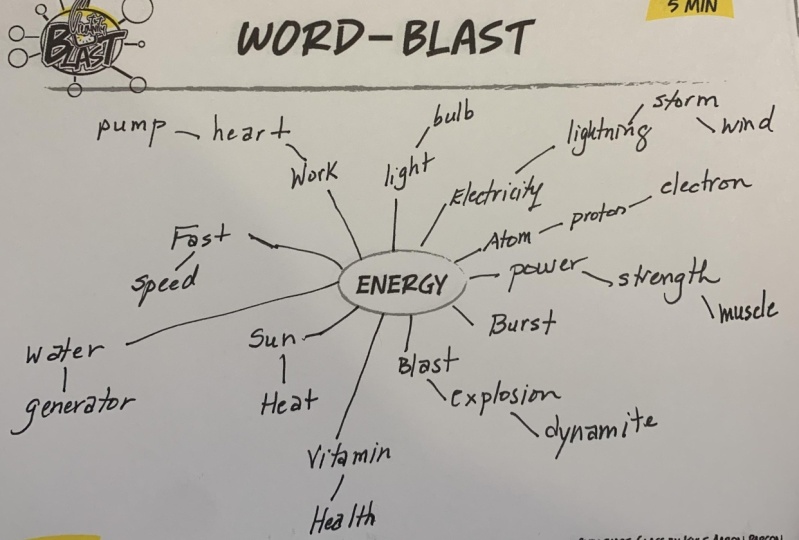 5 MIN
BLAST
WORD-BLAST
pump heart Work
light bulb
Electricity lightning storm wind
Atom proton electron
power strength muscle
Burst
Blast explosion dynamite
Vitamin Health
Sun Heat
Water generator
Fast speed
ENERGY